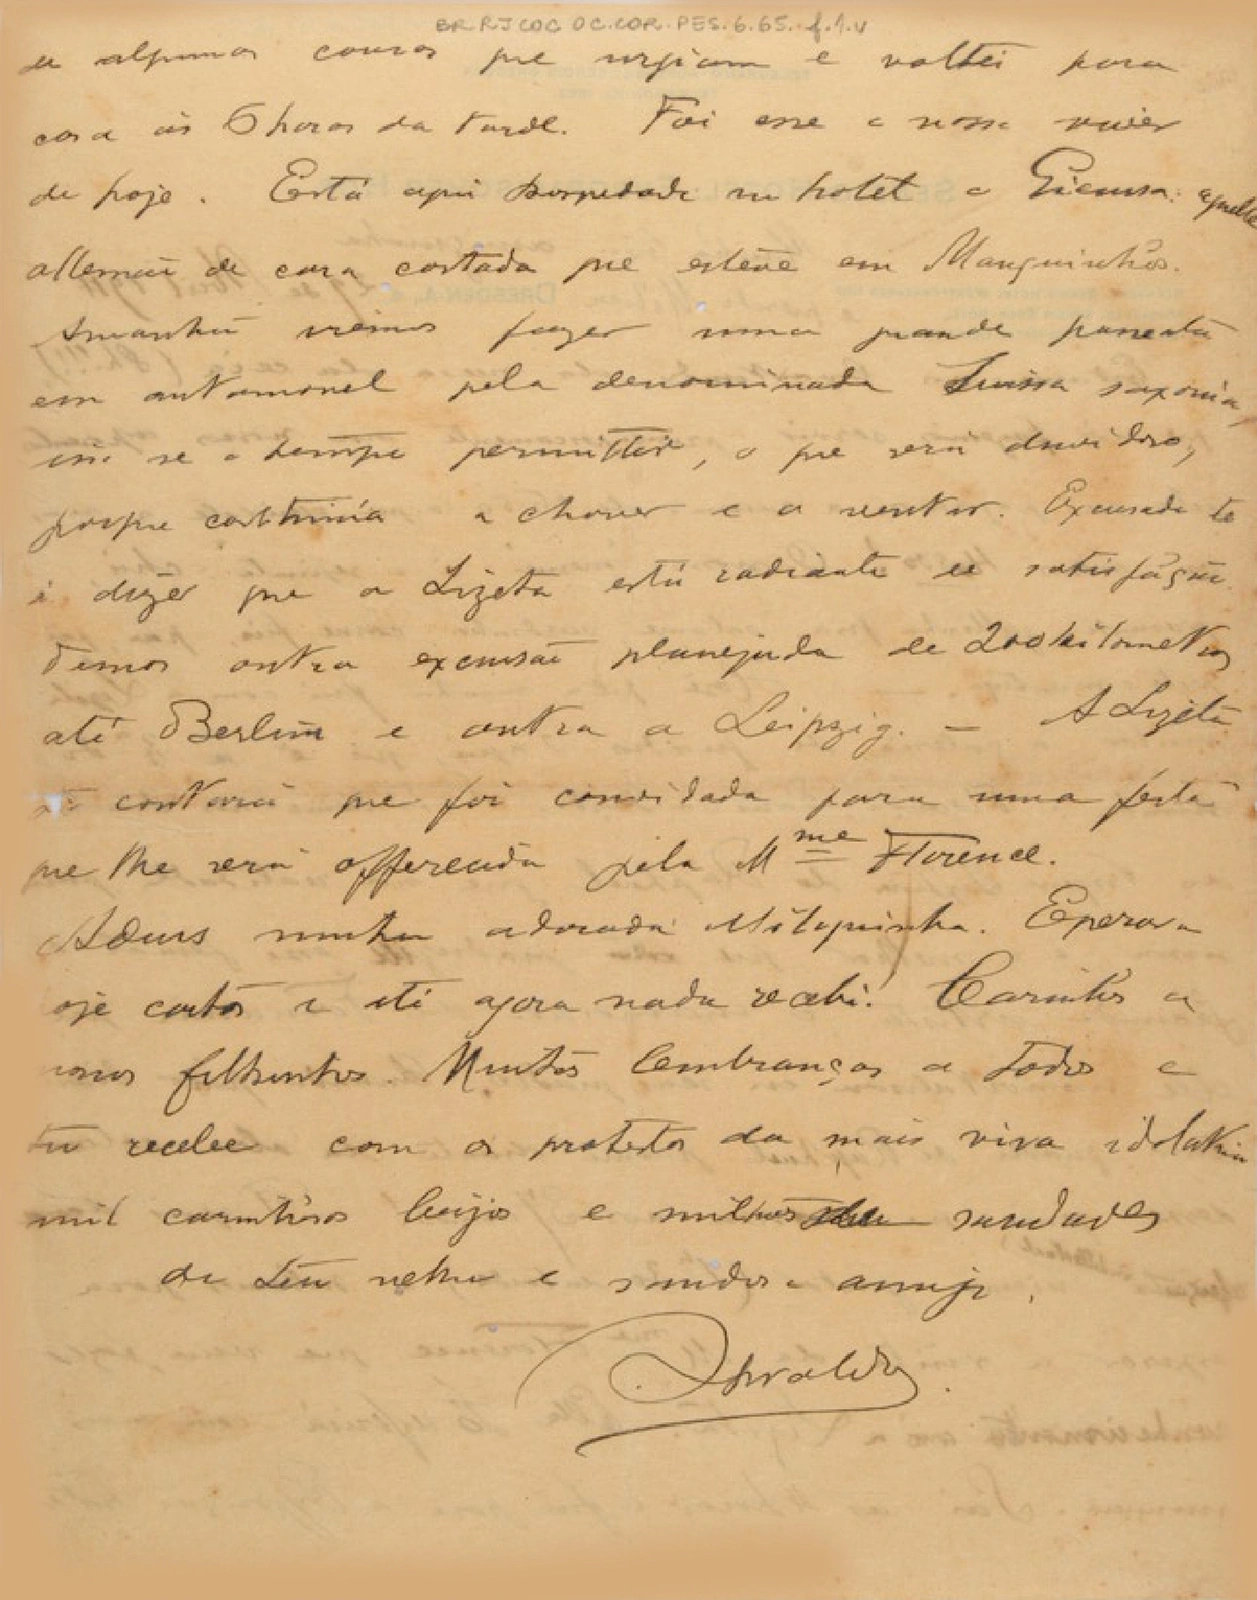 BR RJCOC OC.COR.PES.6.65. f.1.v
de algumas cousas que urgiam e voltei para
casa ás 6 horas da tarde. Foi esse o nosso
de hoje. Está aqui hospedado no hotel o Giemsa: aquelle
allemão de cara cortada que esteve em Manguinhos.
Amanhã vamos fazer uma grande passeata
em automovel pela denominada Suissa saxonia,
isto se o tempo permittir, o que será duvidoso,
porque continúa a chover e a ventar. Excusado te
é dizer que a Lizeta está radiante de satisfação.
Temos outra excursão planejada de 200 kilometros
até Berlim e outra a Leipzig. — A Lizeta
te contará que foi convidada para uma festa
que lhe será offerecida pela Mme Florence.
Adeus minha adorada Miloquinha. Esperava
oje cartas e até agora nada recebi! Carinhos a
nossos filhinhos. Muitas lembranças a todos e
tu recebe com os protestos da mais viva idolatria
mil carinhosos beijos e milhões de saudades
do teu velho e saudoso amigo.
Oswaldo